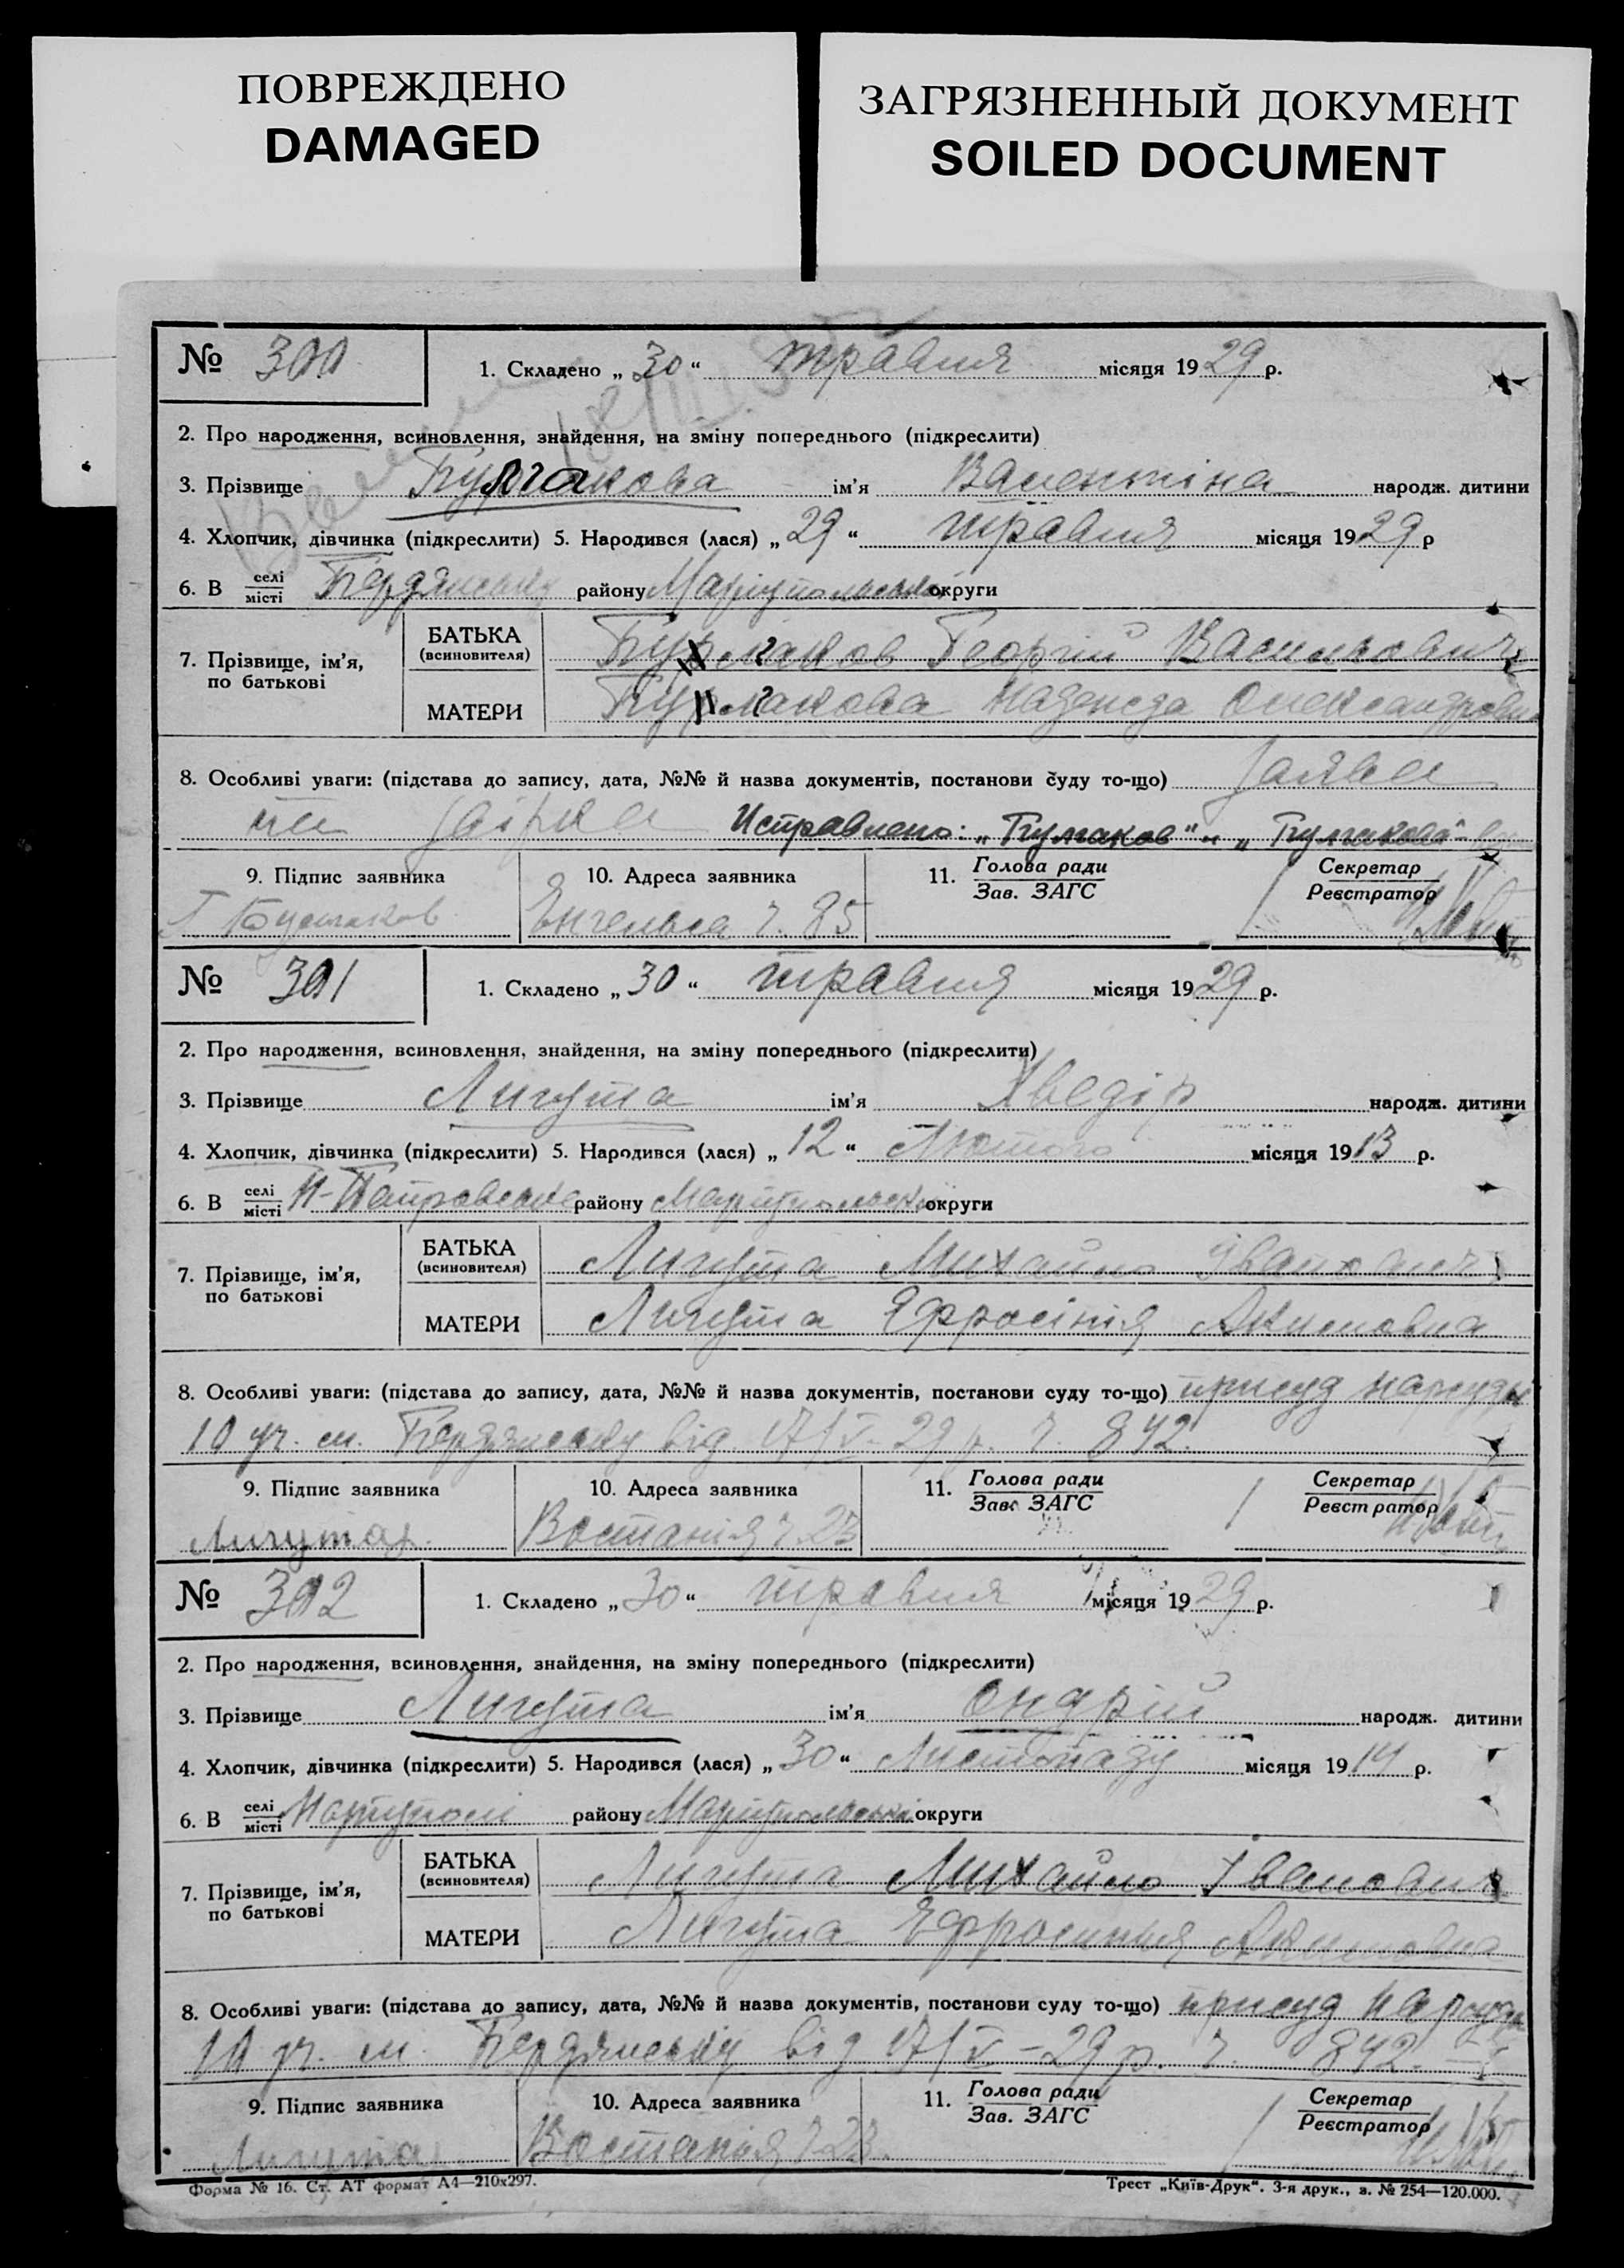 ПОВРЕЖДЕНО
DAMAGED
ЗАГРЯЗНЕННЫЙ ДОКУМЕНТ
SOILED DOCUMENT
№ 300
1. Складено „ 30 “ травня місяця 1929 р.
2. Про народження, всиновлення, знайдення, на зміну попереднього (підкреслити)
3. Прізвище Булгакова ім'я Валентіна народж. дитини
4. Хлопчик, дівчинка (підкреслити) 5. Народився (лася) „ 29 “ травня місяця 1929 р
6. В селі/місті Бердянську району Маріупольської округи
7. Прізвище, ім'я, по батькові
БАТЬКА (всиновителя) Булгаков Георгій Васильович
МАТЕРИ Булгакова Надежда Олександровна
8. Особливі уваги: (підстава до запису, дата, №№ й назва документів, постанови суду то-що) Заява
Исправлено: „Булгаков" и „Булгакова"
9. Підпис заявника
10. Адреса заявника
11. Голова ради / Зав. ЗАГС
Секретар / Реєстратор
Г Булгаков
Енгельса ч. 85
№ 301
1. Складено „ 30 “ травня місяця 1929 р.
2. Про народження, всиновлення, знайдення, на зміну попереднього (підкреслити)
3. Прізвище Личута ім'я Хведір народж. дитини
4. Хлопчик, дівчинка (підкреслити) 5. Народився (лася) „ 12 “ Лютого місяця 1913 р.
6. В селі/місті району Маріупольської округи
7. Прізвище, ім'я, по батькові
БАТЬКА (всиновителя) Личута Михайло Іванович
МАТЕРИ Личута Єфросінія Акимовна
8. Особливі уваги: (підстава до запису, дата, №№ й назва документів, постанови суду то-що) присуд нарсуду
10 уч. м. Бердянську від 17/V-29 р. ч. 842.
9. Підпис заявника
10. Адреса заявника
11. Голова ради / Зав. ЗАГС
Секретар / Реєстратор
Личута
Востанія ч. 23
№ 302
1. Складено „ 30 “ травня місяця 1929 р.
2. Про народження, всиновлення, знайдення, на зміну попереднього (підкреслити)
3. Прізвище Личута ім'я Ондрій народж. дитини
4. Хлопчик, дівчинка (підкреслити) 5. Народився (лася) „ 30 “ Листопаду місяця 1914 р.
6. В селі/місті Маріуполі району Маріупольської округи
7. Прізвище, ім'я, по батькові
БАТЬКА (всиновителя) Личута Михайло Іванович
МАТЕРИ Личута Єфросинья Акимовна
8. Особливі уваги: (підстава до запису, дата, №№ й назва документів, постанови суду то-що) присуд нарсуду
10 уч. м. Бердянську від 17/V-29 р. ч. 842.
9. Підпис заявника
10. Адреса заявника
11. Голова ради / Зав. ЗАГС
Секретар / Реєстратор
Личута
Востанія ч. 23
Форма № 16. Ст. АТ формат А4—210х297.
Трест „Київ-Друк“. 3-я друк., з. № 254—120.000.